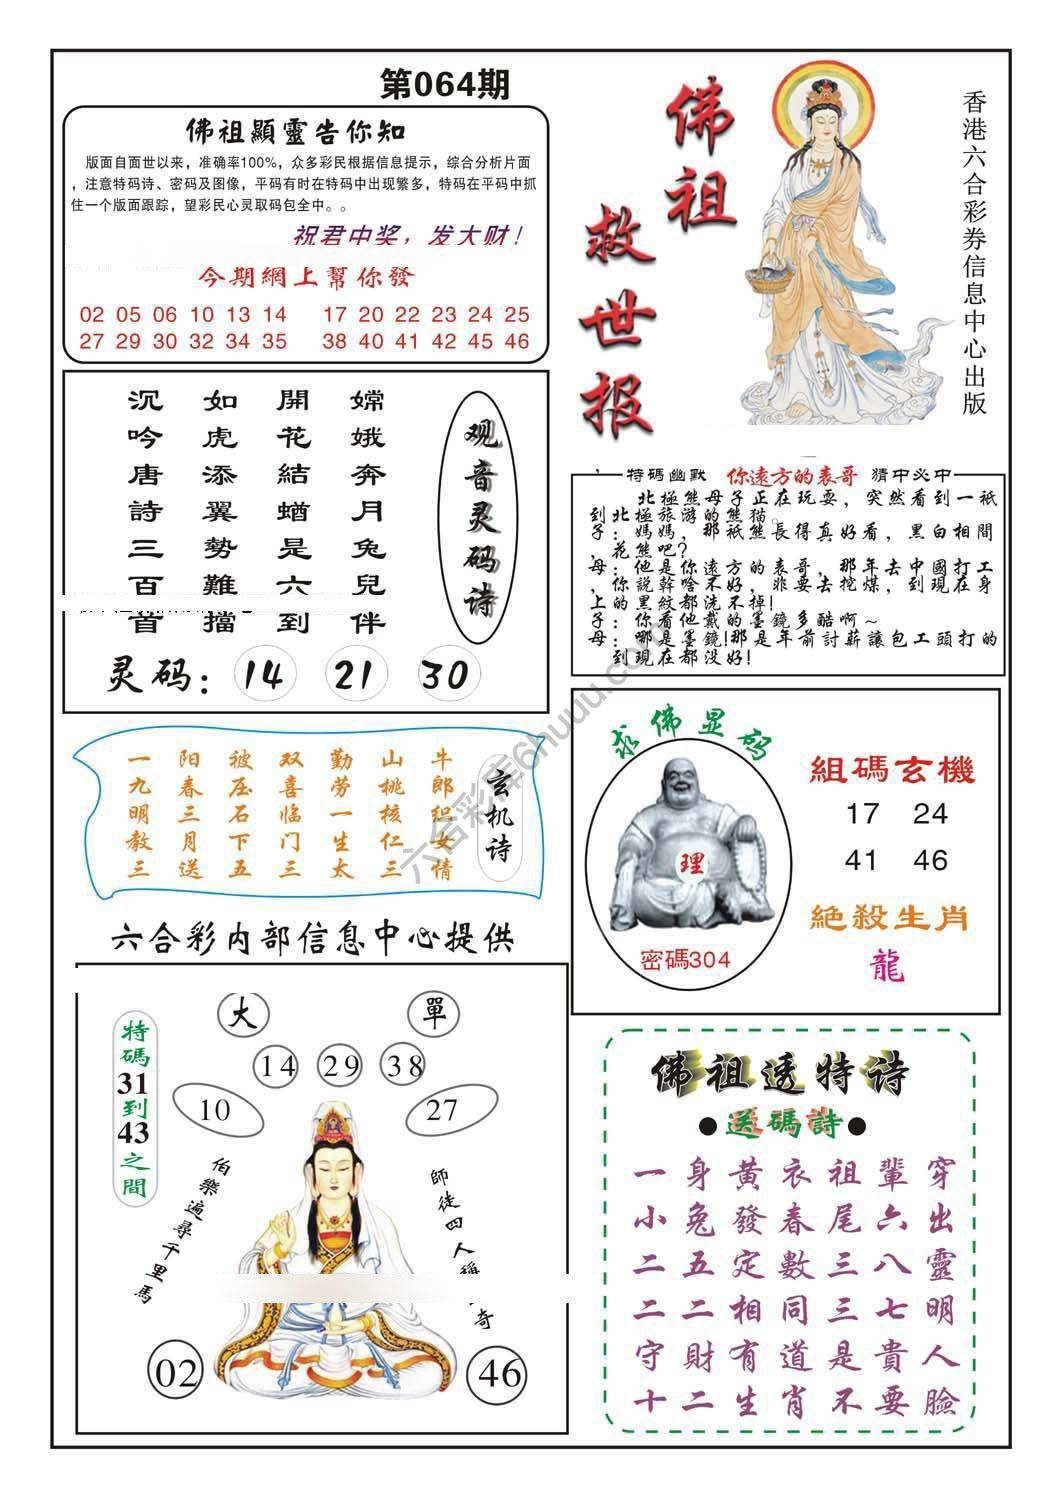 第064期
佛祖顯靈告你知
版面自面世以来，准确率100%，众多彩民根据信息提示，综合分析片面
，注意特码诗、密码及图像，平码有时在特码中出现繁多，特码在平码中抓
住一个版面跟踪，望彩民心灵取码包全中。。
祝君中奖，发大财！
今期網上幫你發
02 05 06 10 13 14 17 20 22 23 24 25
27 29 30 32 34 35 38 40 41 42 45 46
佛祖
救世报
香港六合彩券信息中心出版
观音灵码诗
嫦娥奔月兔兒伴
開花結蝤是六到
如虎添翼勢難擋
沉吟唐詩三百首
灵码：14 21 30
特碼幽默 你遠方的表哥 猜中必中
北極熊母子正在玩耍，突然看到一祇
到北極旅游的熊猫。
子：媽媽，那祇熊長得真好看，黑白相間
，花熊吧？
母：他是你遠方的表哥，那年去中國打工
，你説幹啥不好，非要去挖煤，到現在身
上的黑紋都洗不掉！
子：你看他戴的墨鏡多酷啊～
母：哪是墨鏡！那是年前討薪讓包工頭打的
到現在都没好！
玄机诗
牛郎织女情
山桃核仁三
勤劳一生太
双喜临门三
被压石下五
阳春三月送
一九明教三
求佛显码
理
密碼304
組碼玄機
17 24
41 46
絕殺生肖
龍
六合彩内部信息中心提供
特碼31到43之間
大
單
14 29 38
10
27
伯樂遍尋千里馬
師徒四人稱奇
02
46
佛祖透特诗
●送碼詩●
一身黃衣祖輩穿
小兔發春尾六出
二五定數三八靈
二二相同三七明
守財有道是貴人
十二生肖不要臉
六合彩库6huuu.com